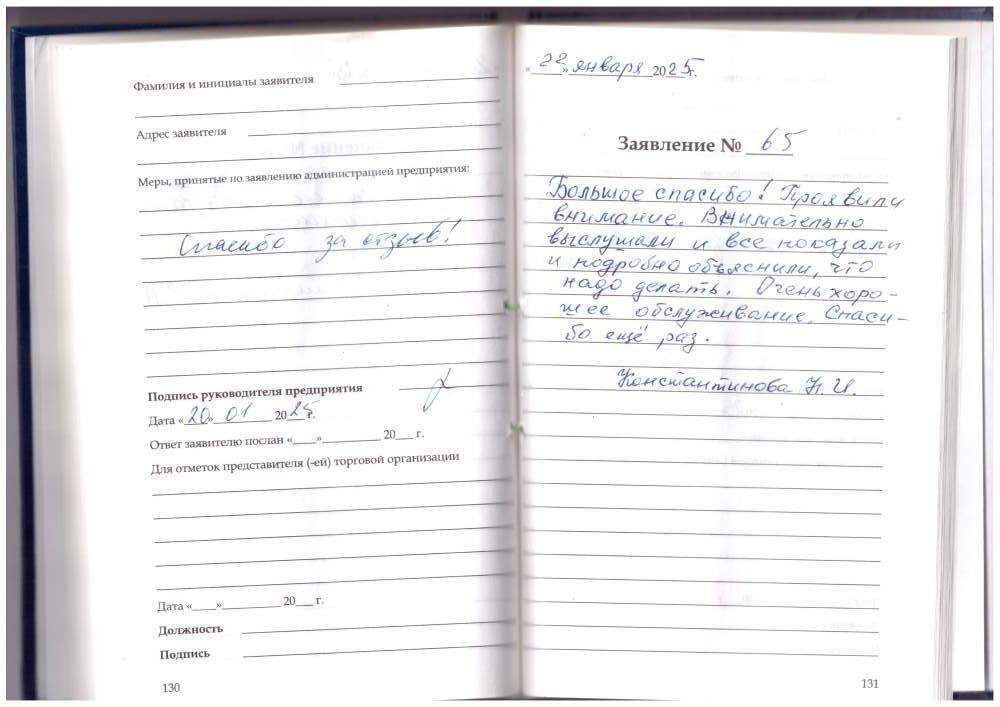 Фамилия и инициалы заявителя
Адрес заявителя
Меры, принятые по заявлению администрацией предприятия:
Спасибо за отзыв!
Подпись руководителя предприятия
Дата «20» 01 2025 г.
Ответ заявителю послан «____»__________ 20___ г.
Для отметок представителя (-ей) торговой организации
Дата «____»__________ 20___ г.
Должность
Подпись
130
«22» января 2025 г.
Заявление № 65
Большое спасибо! Проявили
внимание. Внимательно
выслушали и все показали
и подробно объяснили, что
надо делать. Очень хоро-
шее обслуживание. Спаси-
бо ещё раз.
Константинова Н.И.
131